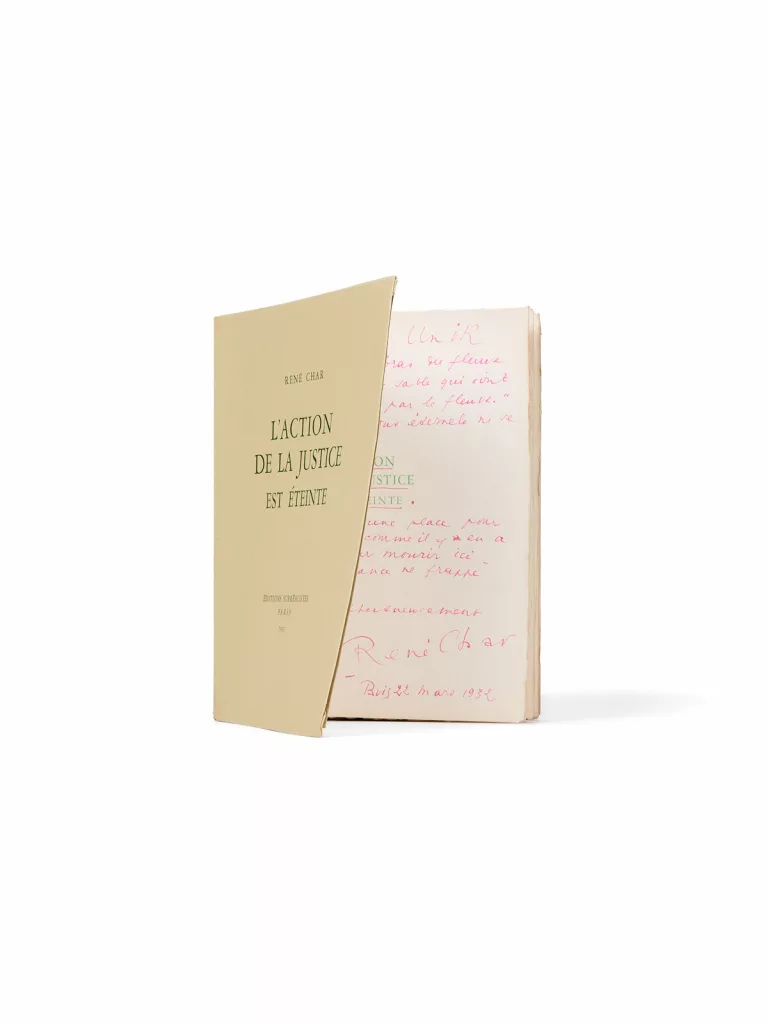 RENÉ CHAR
L'ACTION
DE LA JUSTICE
EST ÉTEINTE
ÉDITIONS SURRÉALISTES
PARIS
Unik
bras du fleuve
sable qui sont
par le fleuve."
ne se
ION
USTICE
EINTE.
une place pour
comme il y en a
mourir ici
ance ne frappe
René Char
Paris 22 mars 1932